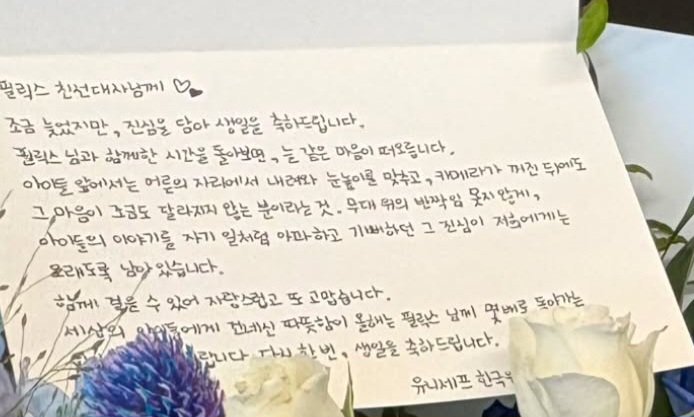 필릭스 친선대사님께 ♡
조금 늦었지만, 진심을 담아 생일을 축하드립니다.
필릭스 님과 함께한 시간을 돌아보면, 늘 같은 마음이 떠오릅니다.
아이들 앞에서는 어른의 자리에서 내려와 눈높이를 맞추고, 카메라가 꺼진 뒤에도
그 마음이 조금도 달라지지 않는 분이라는 것. 무대 위의 반짝임 못지 않게,
아이들의 이야기를 자기 일처럼 아파하고 기뻐하던 그 진심이 저희에게는
오래도록 남아 있습니다.
함께 걸을 수 있어 자랑스럽고 또 고맙습니다.
세상의 아이들에게 건네신 따뜻함이 올해는 필릭스 님께 몇 배로 돌아가는
다시 한 번, 생일을 축하드립니다.
유니세프 한국